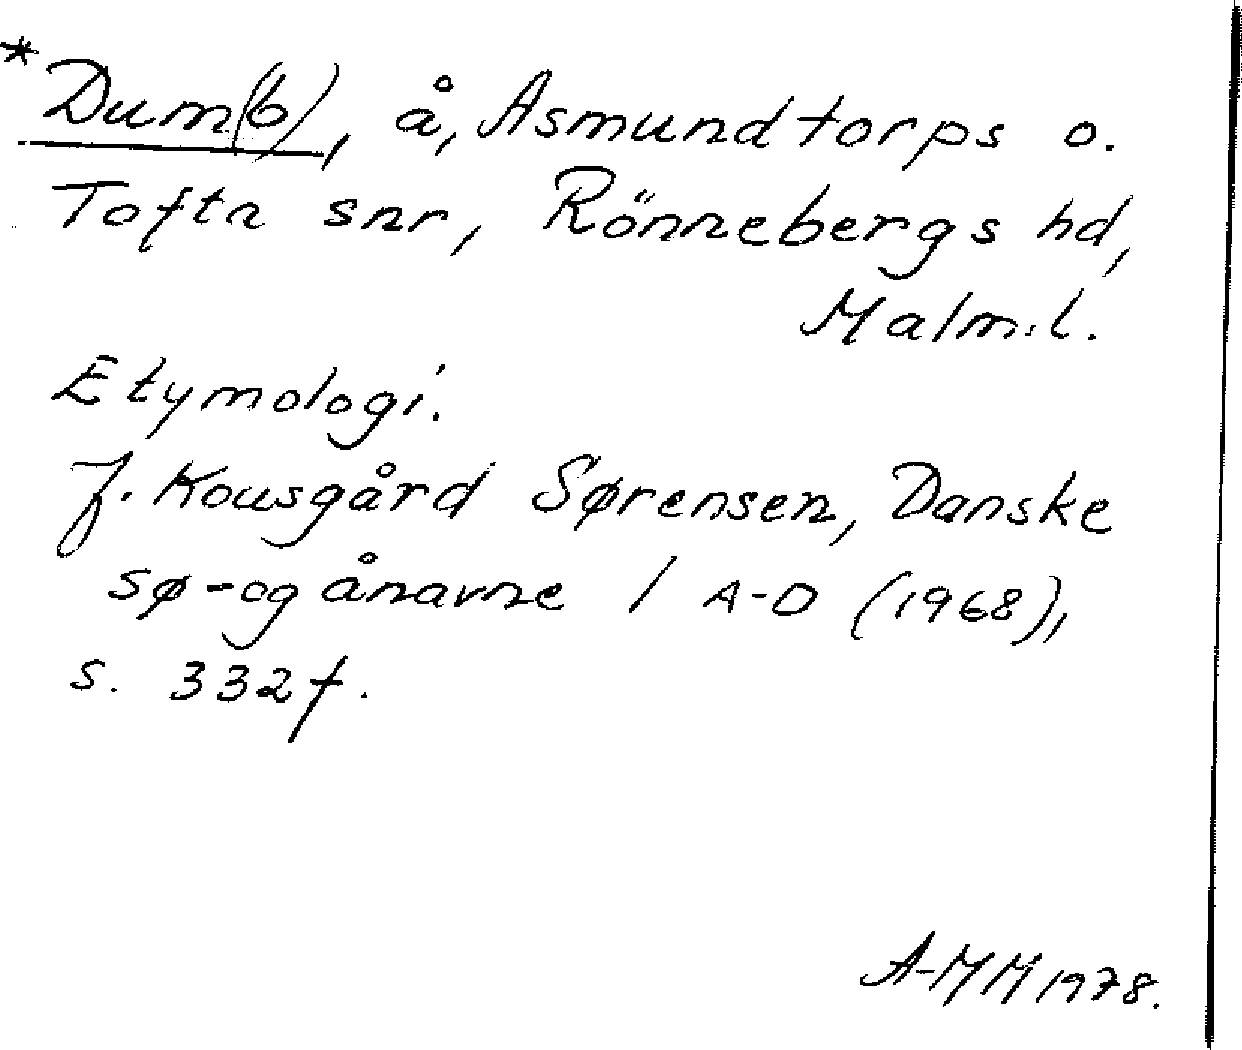 *Dum(b), å, Asmundtorps o.
Tofta snr, Rönnebergs hd,
Malm.l.
Etymologi.
J. Kousgård Sørensen, Danske
sø- og ånavne 1 A-D (1968),
s. 332 f.
A-MM 1978.